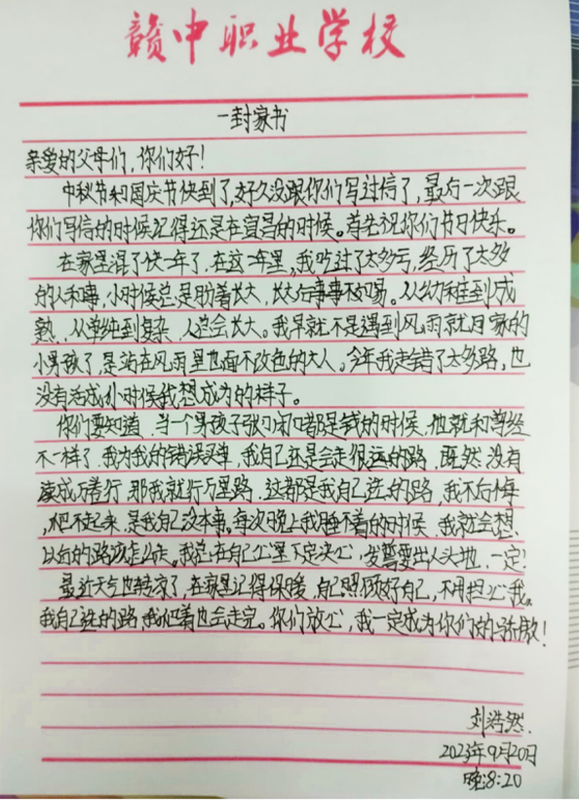 赣中职业学校
一封家书
亲爱的父母们，你们好！
中秋节和国庆节快到了，好久没跟你们写过信了，最后一次跟
你们写信的时候记得还是在宜昌的时候。首先祝你们节日快乐。
在家里混了快一年了，在这一年里，我吃过了太多亏，经历了太多
的人和事，小时候总是盼着长大，长大后事事不如易。从幼稚到成
熟，从单纯到复杂，人总会长大。我早就不是遇到风雨就回家的
小男孩了，是站在风雨里也面不改色的大人。今年我走错了太多路，也
没有活成小时候我想成为的样子。
你们要知道，当一个男孩子张口闭口都是钱的时候，他就和曾经
不一样了，我为我的错误买单，我自己还是会走很远的路，既然没有
家成万着行，那我就行万里路，这都是我自己选的路，我不后悔
，爬不起来，是我自己没本事。每次晚上我睡不着的时候，我就会想
以后的路该怎么走。我总在自己心里下定决心，发誓要出人头地，一定！
最近天气也转凉了，在家里记得保暖，自己照顾好自己，不用担心我。
我自己选的路，我爬着也会走完。你们放心，我一定成为你们的骄傲！
刘浩然.
2023年9月20日
晚8:20